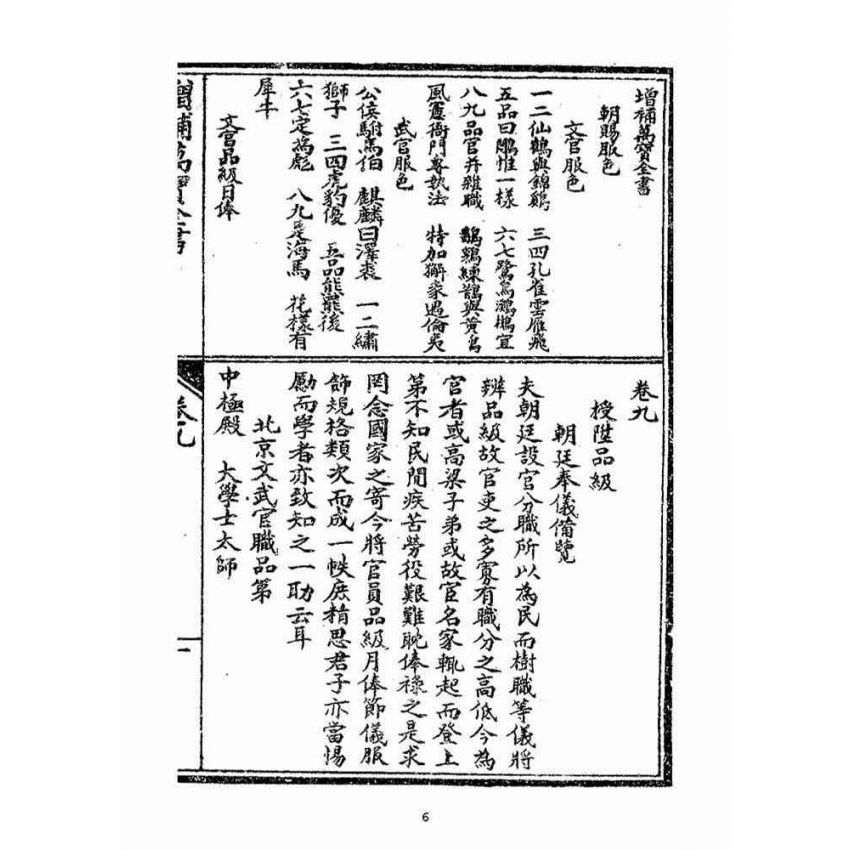 增補萬寶全書
朝賜服色
文官服色
一二仙鶴與錦鷄 三四孔雀雲雁飛
五品白鷴惟一樣 六七鷺鳥鸂鶒宜
八九品官并雜職 鵪鶉練鵲與黃鸟
風憲衙門專執法 特加獬豸邁倫夷
武官服色
公侯駙馬伯 麒麟白澤裘 一二繡
獅子 三四虎豹優 五品熊羆後
六七定為彪 八九是海馬 花樣有
犀牛
文官品級月俸
卷九
授陞品級
朝廷奉儀備覽
夫朝廷設官分職所以為民而樹職等儀將
辨品級故官吏之多寡有職分之高低今為
官者或高梁子弟或故宦名家輒起而登上
第不知民間疾苦勞役艱難耽俸祿之是求
罔念國家之寄今將官員品級月俸節儀服
飾規格類次而成一帙庶精思君子亦當惕
勵而學者亦致知之一助云耳
北京文武官職品第
中極殿 大學士太師
增補萬寶全書
卷九
一
6